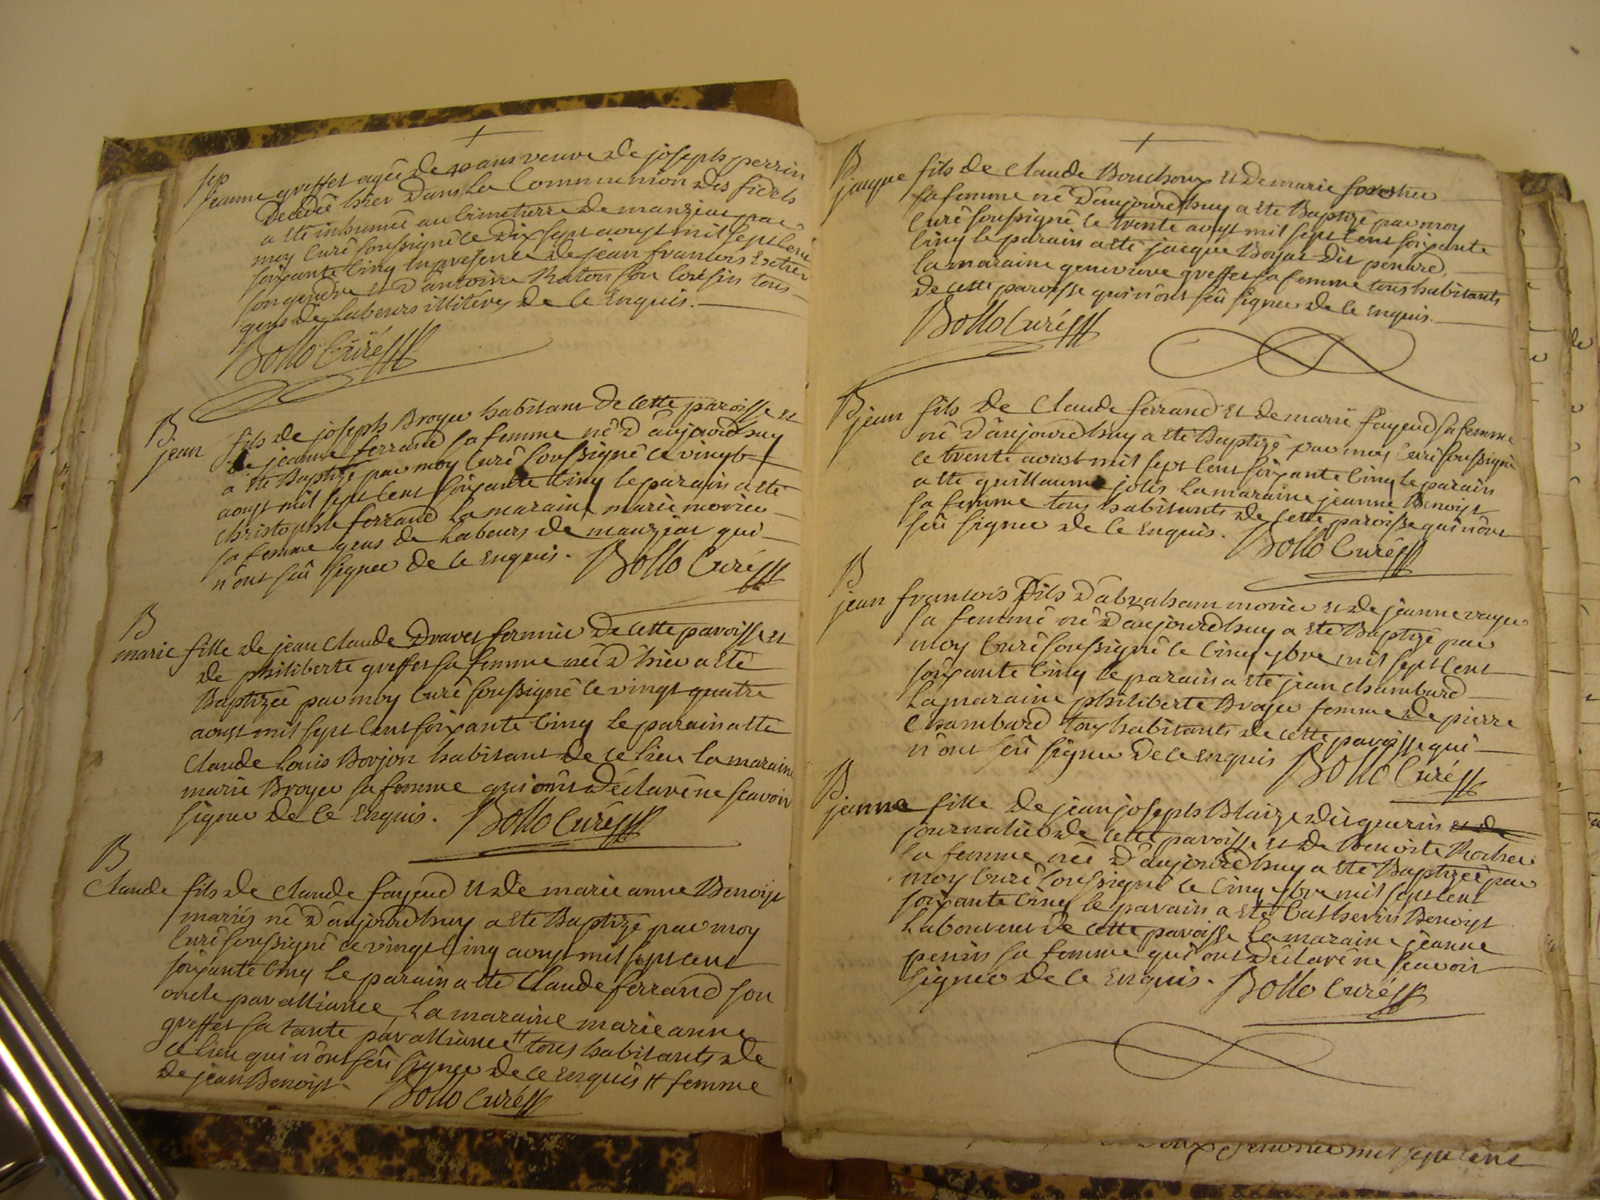 Sep
jeanne greffet agée de 40 ans veuve de joseph perrin
decedée hier dans la Communion des fidels
a été inhumée au Cimetierre de manziat par
moy Curé soussigné le Dix sept aoust mil sept Cent
soixante Cinq en presence de jean francois
son gendre et d'antoine Raton son Cousin tous
gens de Labeurs illiterés de Ce Enquis.
Bollo Curé
B
jean fils de joseph Broyer habitant de Cette paroisse et
de jeanne ferrand sa femme né d'aujourdhuy
a été Baptizé par moy Curé soussigné Ce vingt
aoust mil sept Cent soixante Cinq le parain a été
christophle ferrand la maraine marie morier
sa femme gens de Labeurs de manziat qui
n'ont sçû signer de Ce Enquis. Bollo Curé
B
marie fille de jean Claude Dravet fermier de Cette paroisse et
de philiberte greffet sa femme née d'hier a été
Baptizée par moy Curé soussigné Ce vingt quatre
aoust mil sept Cent soixante Cinq le parain a été
Claude Louis Borjon habitant de Ce lieu la maraine
marie Broyer sa femme qui ont déclaré ne scavoir
signer de Ce Enquis. Bollo Curé
B
Claude fils de Claude fayeud et de marie anne Benoist
mariés né d'aujourdhuy a été Baptizé par moy
Curé soussigné Ce vingt Cinq aoust mil sept cent
soixante Cinq le parain a été Claude ferrand son
oncle par alliance, la maraine marie anne
greffet sa tante par alliance # tous habitants de
Ce lieu qui n'ont sçû signer de Ce Enquis # femme
de jean Benoist. Bollo Curé
B
jaque fils de Claude Bouchoux et de marie forestier
sa femme né d'aujourdhuy a été Baptizé par moy
Curé soussigné Ce trente aoust mil sept Cent soixante
Cinq le parain a été jacque Boyat dit penard
la maraine genevieve greffet sa femme tous habitants
de Cette paroisse qui n'ont sçû signer de Ce Enquis.
Bollo Curé
B
jean fils de Claude ferrand et de marie fayeud sa femme
né d'aujourdhuy a été Baptizé par moy Curé soussigné
Ce trente aoust mil sept Cent soixante Cinq le parain
a été guillaume joly la maraine jeanne Benoist
sa femme tous habitants de Cette paroisse qui n'ont
sçû signer de Ce Enquis. Bollo Curé
B
jean francois fils d'abraham morier et de jeanne
sa femme né d'aujourdhuy a été Baptizé par
moy Curé soussigné Ce Cinq 7bre mil sept Cent
soixante Cinq le parain a été jean chambard
la maraine philiberte Broyer femme de pierre
Chambard tous habitants de Cette paroisse qui
n'ont sçû signer de Ce Enquis Bollo Curé
B
jeanne fille de jean joseph Blaize dit guerin et de
journalier de Cette paroisse et de Benoite
sa femme née d'aujourdhuy a été Baptizée par
moy Curé soussigné Ce Cinq 7bre mil sept Cent
soixante Cinq le parain a été Catherin Benoist
Laboureur de Cette paroisse la maraine jeanne
perrin sa femme qui ont déclaré ne scavoir
signer de Ce Enquis. Bollo Curé
mil sept Cent